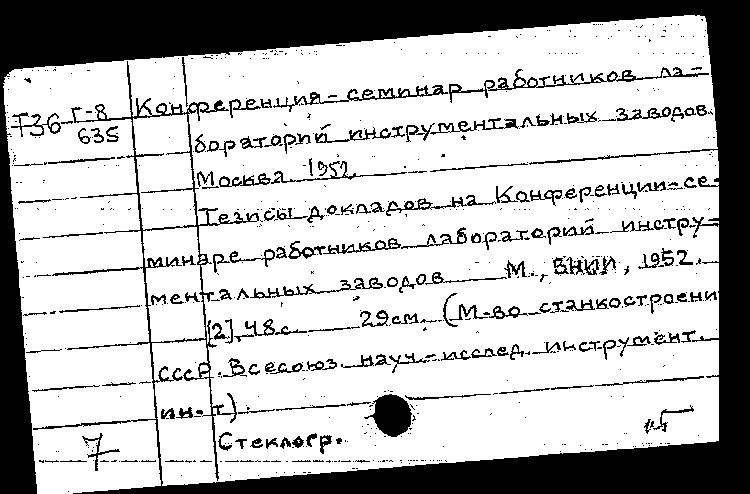 Т36 Г-8 Конференция-семинар работников ла-
635
бораторий инструментальных заводов.
Москва 1952.
Тезисы докладов на Конференции-се-
минаре работников лабораторий инстру-
ментальных заводов М., ВНИИ, 1952.
[2], 48 с. 29 см. (М-во станкостроени
СССР. Всесоюз. науч.-исслед. инструмент.
ин-т).
7 Стеклогр.